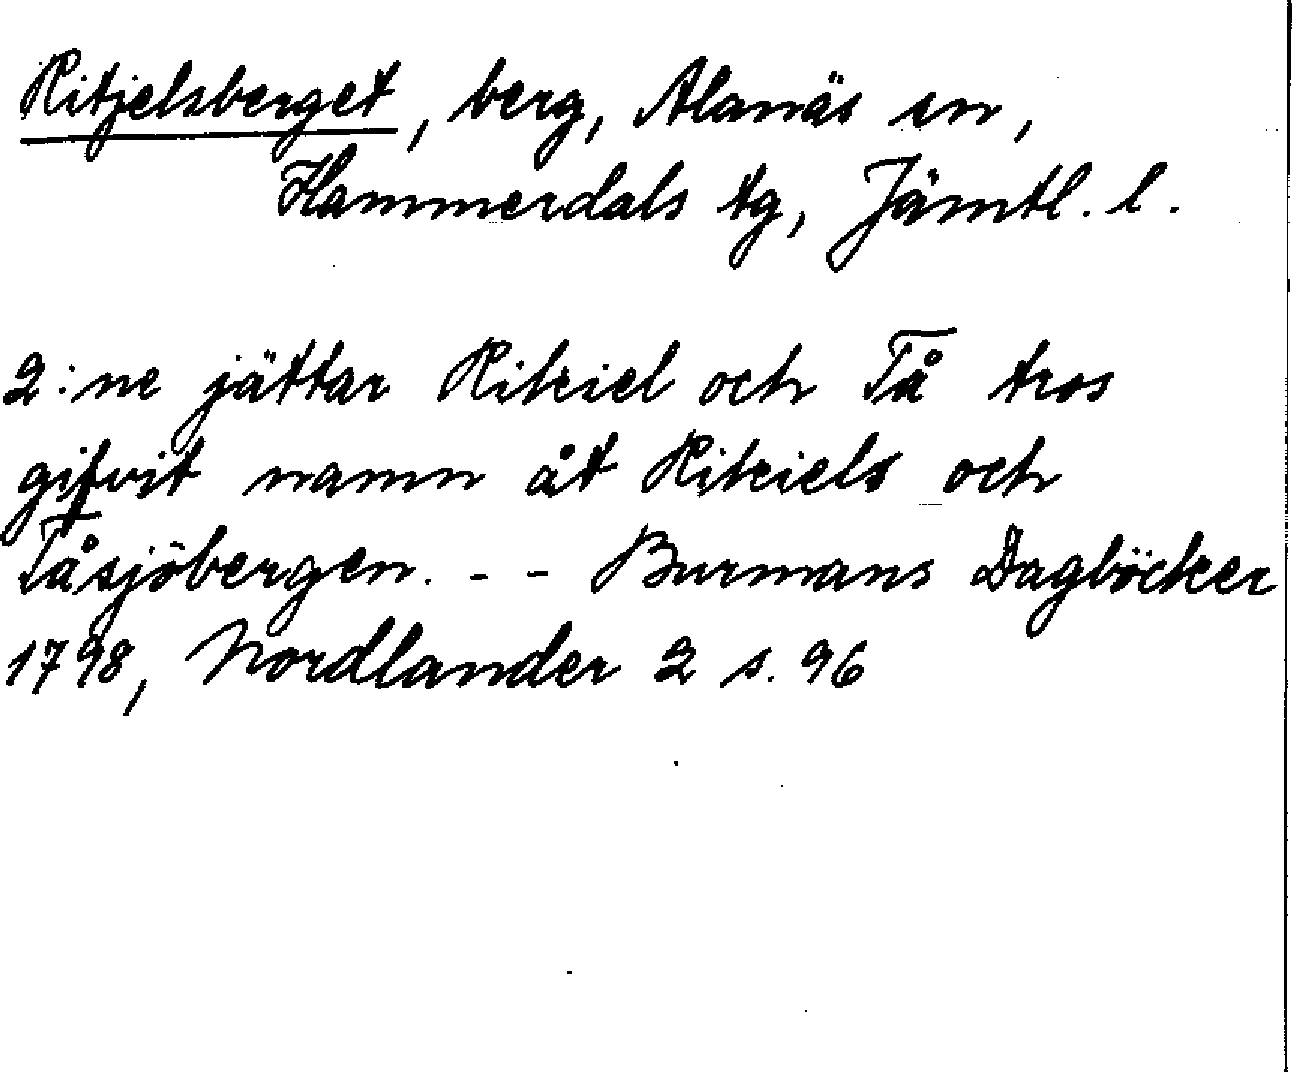 Ritjelsberget, berg, Alanäs sn,
Hammerdals tg, Jämtl. l.
2:ne jättar Rikiel och Tå tros
gifvit namn åt Rikiels och
Tåsjöbergen. - - Burmans Dagböcker
1798, Nordlander 2 s. 96